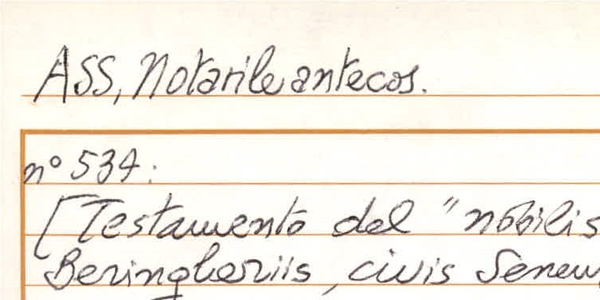 ASS, Notarile antecos.
n° 534:
[Testamento del "nobilis
Beringheriis, civis Senen